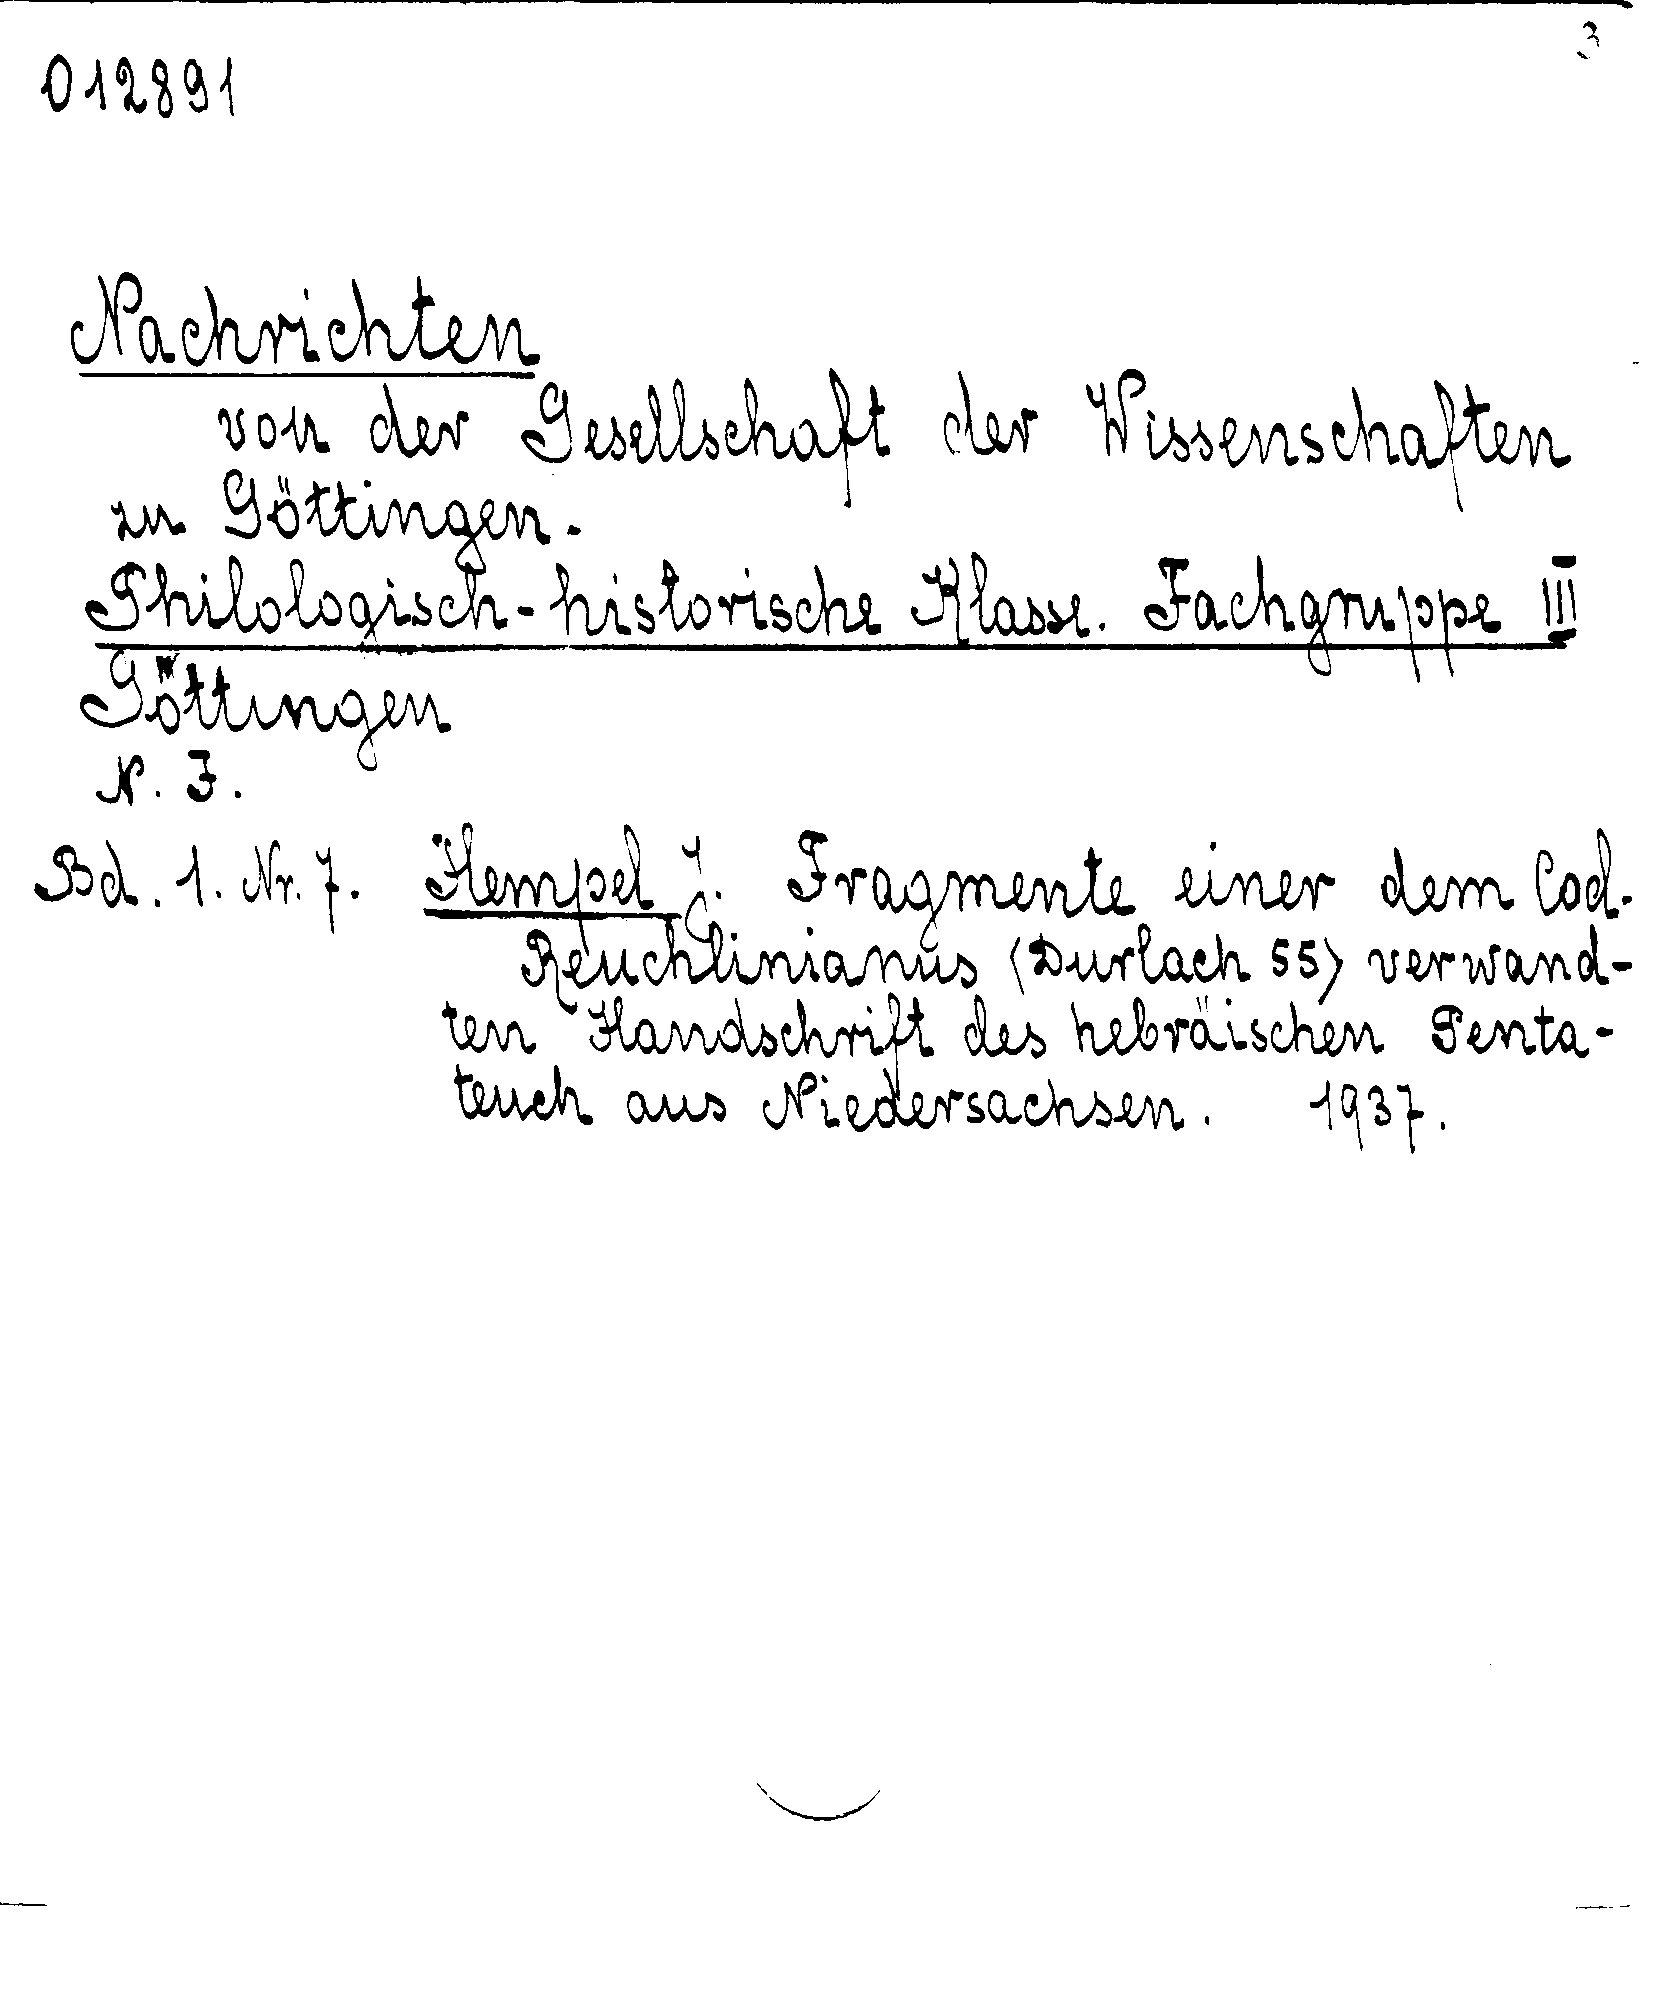 3
012891
Nachrichten
von der Gesellschaft der Wissenschaften
zu Göttingen.
Philologisch-historische Klasse. Fachgruppe III
Göttingen
N. F.
Bd. 1. Nr. 7. Hempel J. Fragmente einer dem Cod.
Reuchlinianus (Durlach 55) verwand-
ten Handschrift des hebräischen Penta-
teuch aus Niedersachsen. 1937.